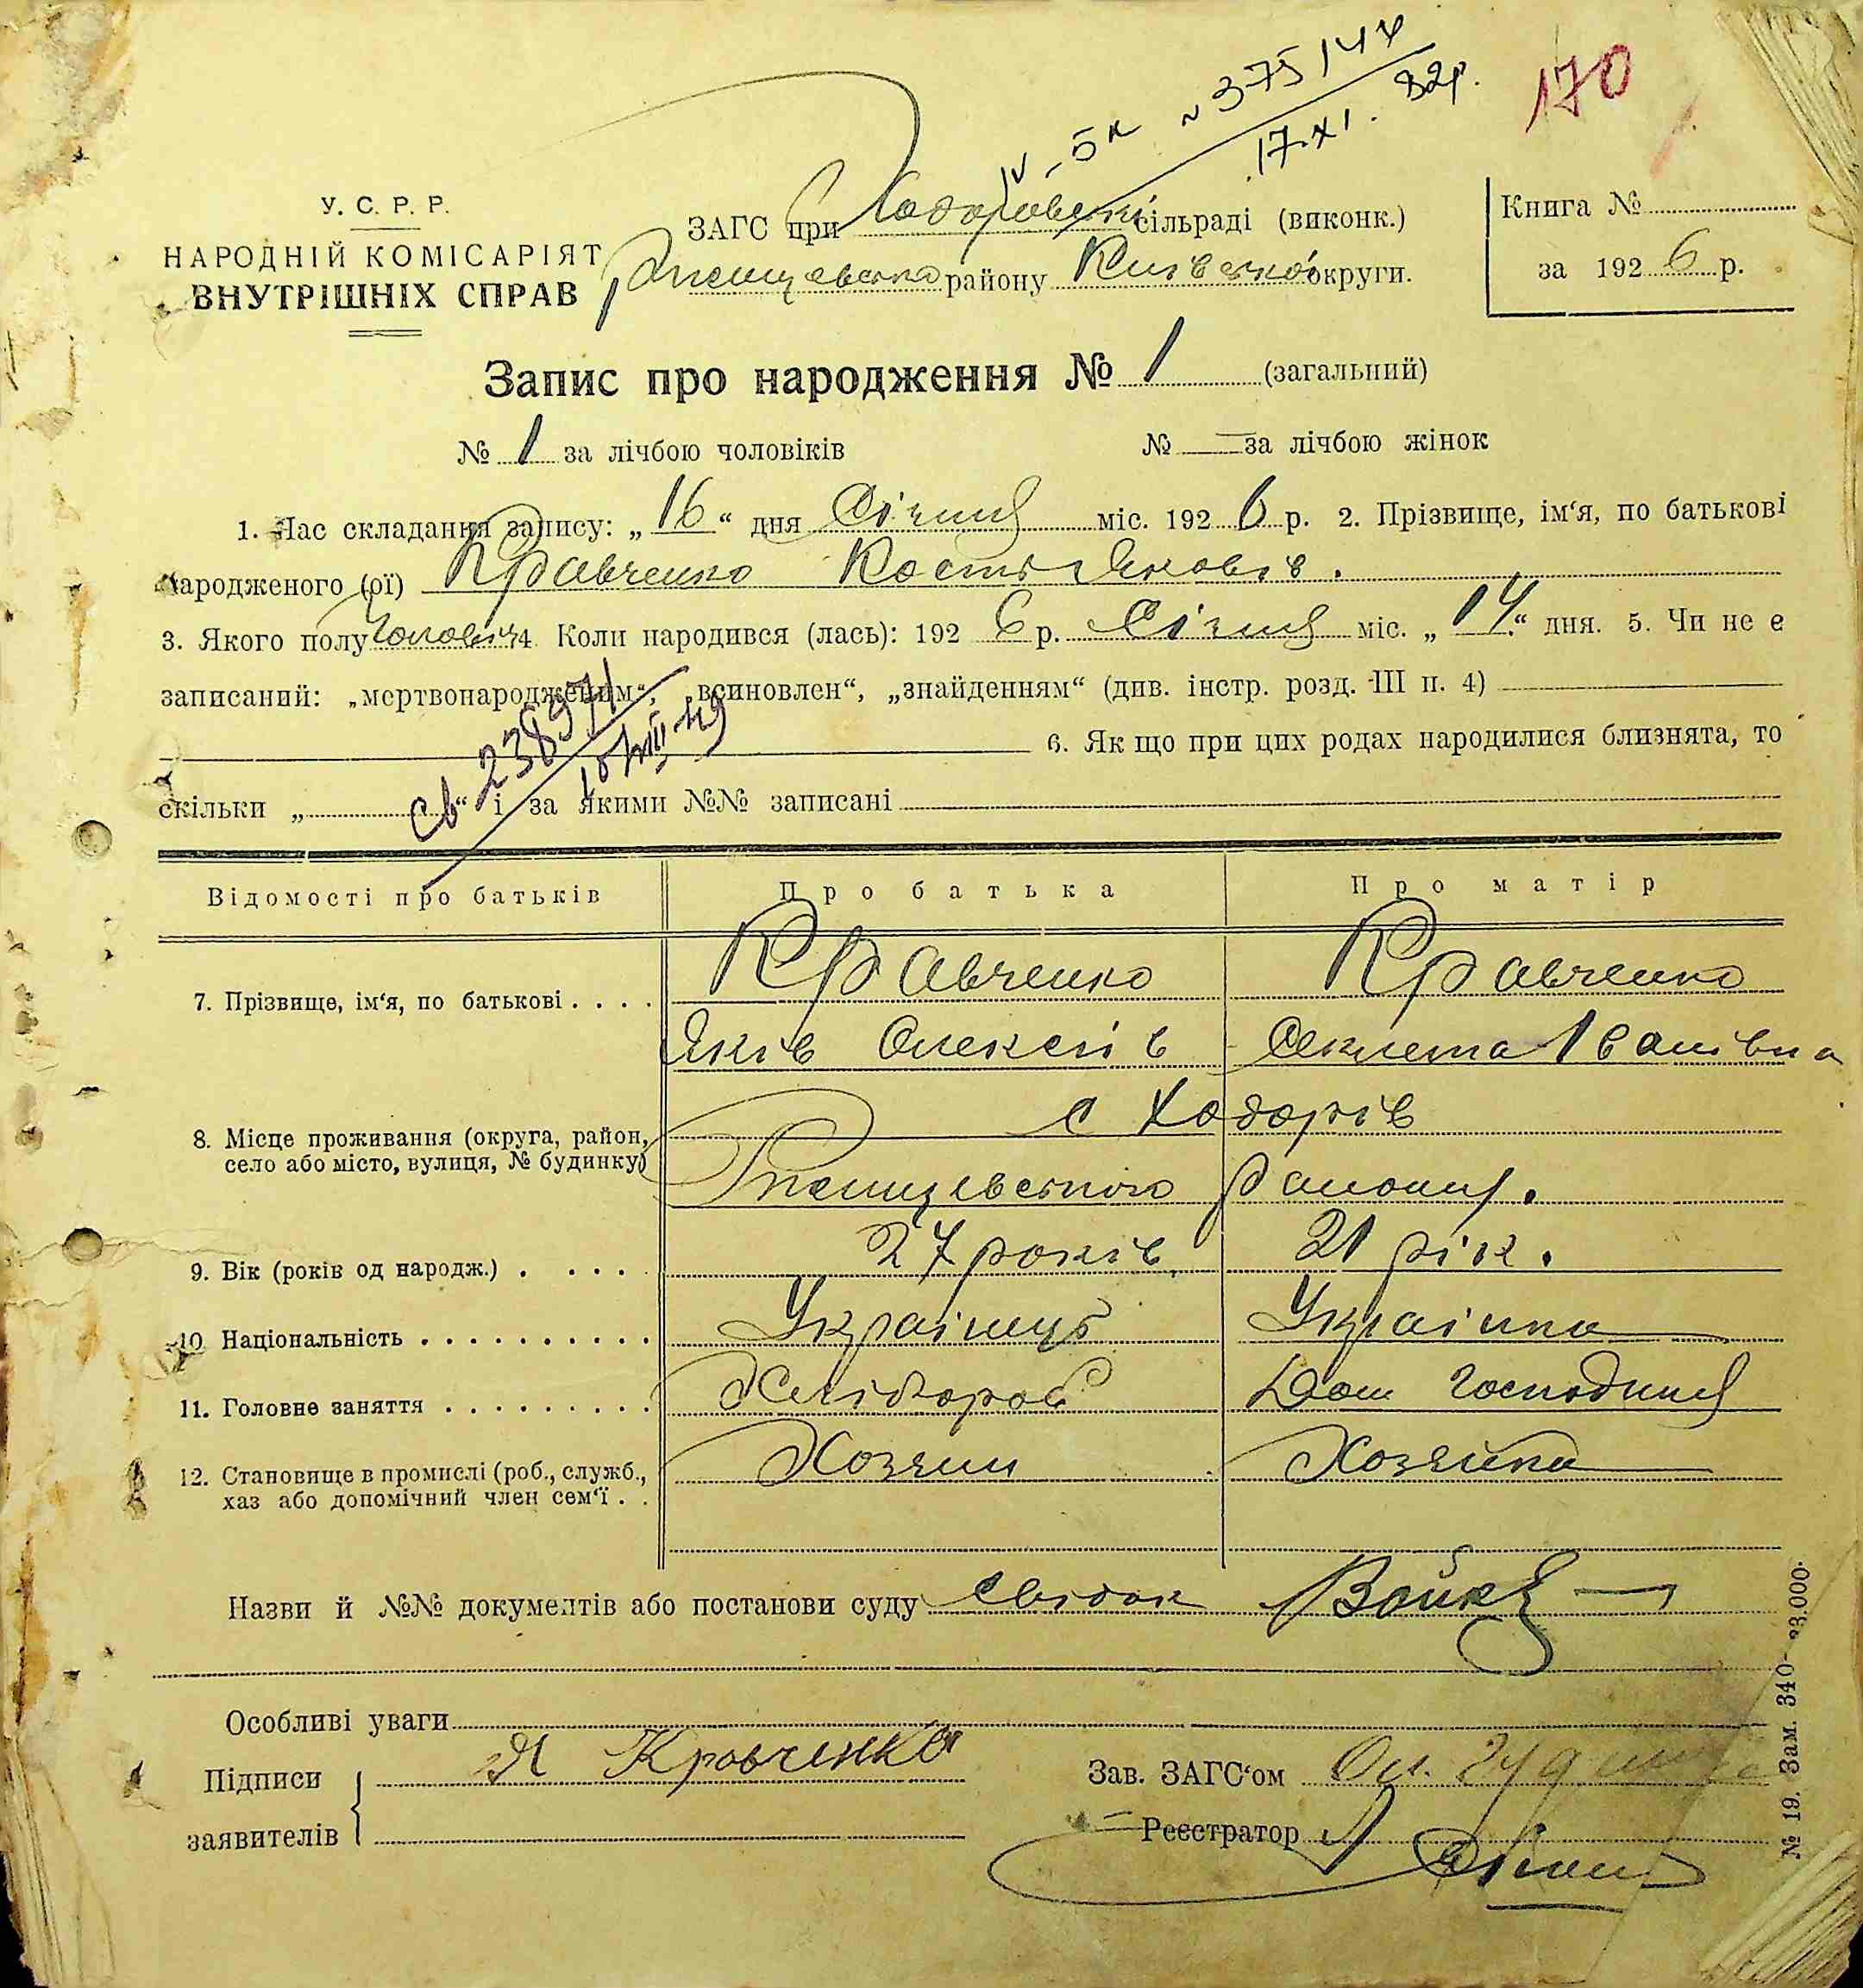 170
IV-5к № 375/44
17.XI. 82р.
У. С. Р. Р.
НАРОДНІЙ КОМІСАРІЯТ
ВНУТРІШНІХ СПРАВ
ЗАГС при Ходорівській сільраді (виконк.)
Ржищевського району Київської округи.
Книга №
за 1926 р.
Запис про народження № 1 (загальний)
№ 1 за лічбою чоловіків № — за лічбою жінок
1. Час складання запису: „16“ дня Січня міс. 1926 р. 2. Прізвище, ім‘я, по батькові
народженого (ої) Кравченко Кость Яковів.
3. Якого полу Чоловіч 4. Коли народився (лась): 1926 р. Січня міс. „14“ дня. 5. Чи не є
записаний: „мертвонародженим“, „всиновлен“, „знайденням“ (див. інстр. розд. III п. 4)
6. Як що при цих родах народилися близнята, то
скільки „ “ і за якими №№ записані
Св 238971
Відомості про батьків Про батька Про матір
7. Прізвище, ім‘я, по батькові . . . . Кравченко Кравченко
Яків Олексіїв Секлета Іванівна
8. Місце проживання (округа, район, с Ходорів
село або місто, вулиця, № будинку) Ржищевського району.
9. Вік (років од народж.) . . . . 27 років 21 рік.
10 Національність . . . . . . . . . . Українець Українка
11. Головне заняття . . . . . . . . . Хлібороб Дом Господиня
12. Становище в промислі (роб., служб., Хозяин Хозяйка
хаз або допомічний член сем‘ї . .
Назви й №№ документів або постанови суду свідок
Особливі уваги
Підписи Я Кровченко
заявителів
Зав. ЗАГС‘ом
Реєстратор
№ 19. Зам. 340-23.000.